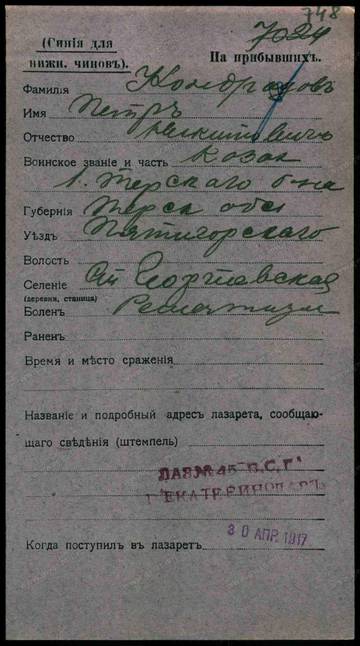 748
7024
(Синія для
нижн. чиновъ).
На прибывшихъ.
Фамилія Кондрашовъ
Имя Петръ
Отчество Никитовичъ
Воинское званіе и часть Козак
1. Терскаго б-на
Губернія Терск обл
Уѣздъ Пятигорскаго
Волость
Селеніе Ст Георгіевская
(деревня, станица)
Боленъ Ревматизм
Раненъ
Время и мѣсто сраженія
Названіе и подробный адресъ лазарета, сообщаю-
щаго свѣдѣнія (штемпель)
ЛАЗ № 45 В.С.Г.
Г. ЕКАТЕРИНОДАРЪ
30 АПР. 1917
Когда поступилъ въ лазаретъ